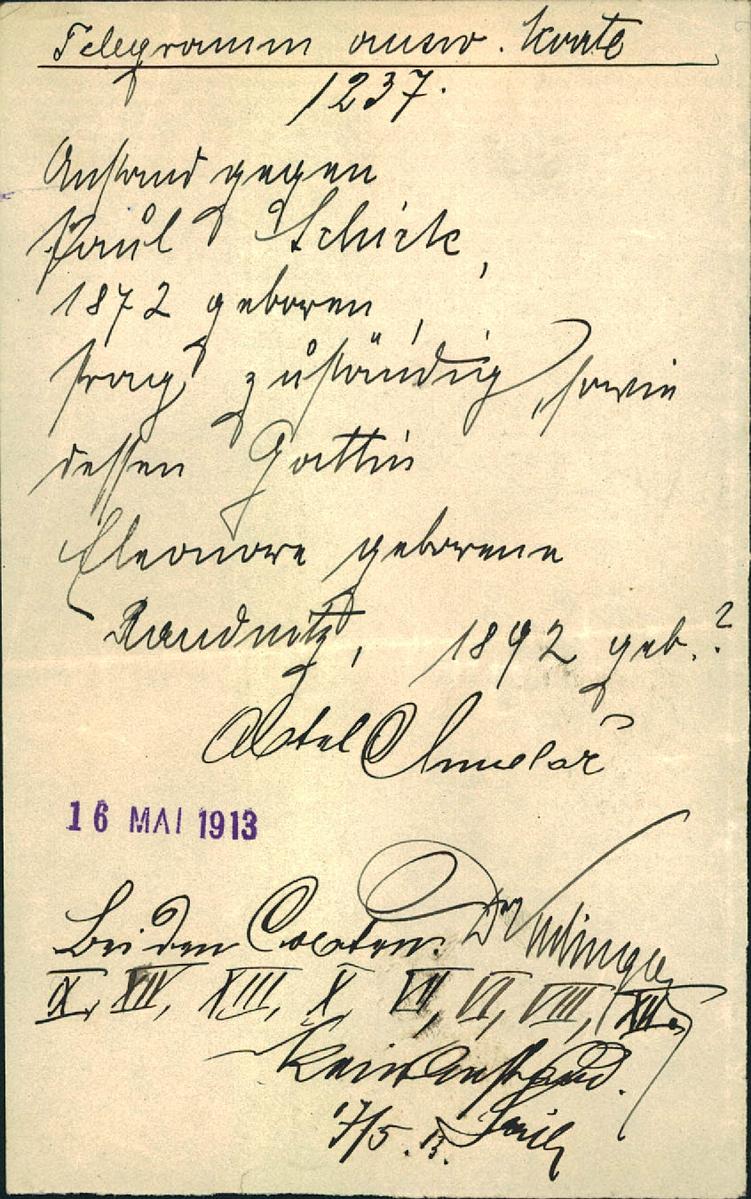 Telegramm ausw. Karte
1237.
Anstand gegen
Paul Schick,
1872 geboren,
Prag zuständig, sowie
dessen Gattin
Eleonore geborene
Raudnitz, 1892 geb.?
Chmelař
16 MAI 1913
Bei den Coaten. Dr
IX, XIV, XIII, X, VII, VI, VIII, XII.
kein Anstand.
17/5. 13.